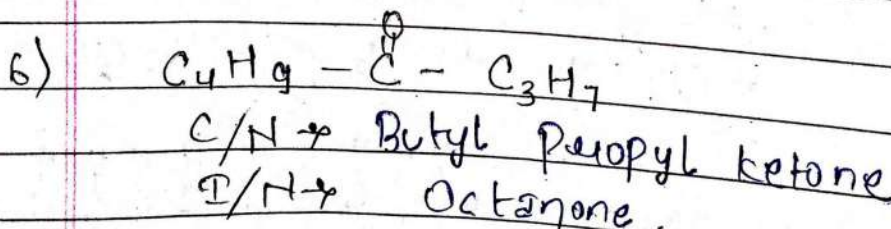 O
6) C4H9 - C - C3H7
C/N → Butyl Propyl ketone
I/N → Octanone.